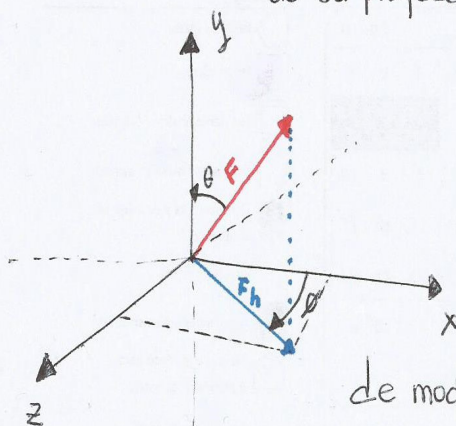 y
θ
F
Fh
ø
x
z
de mod